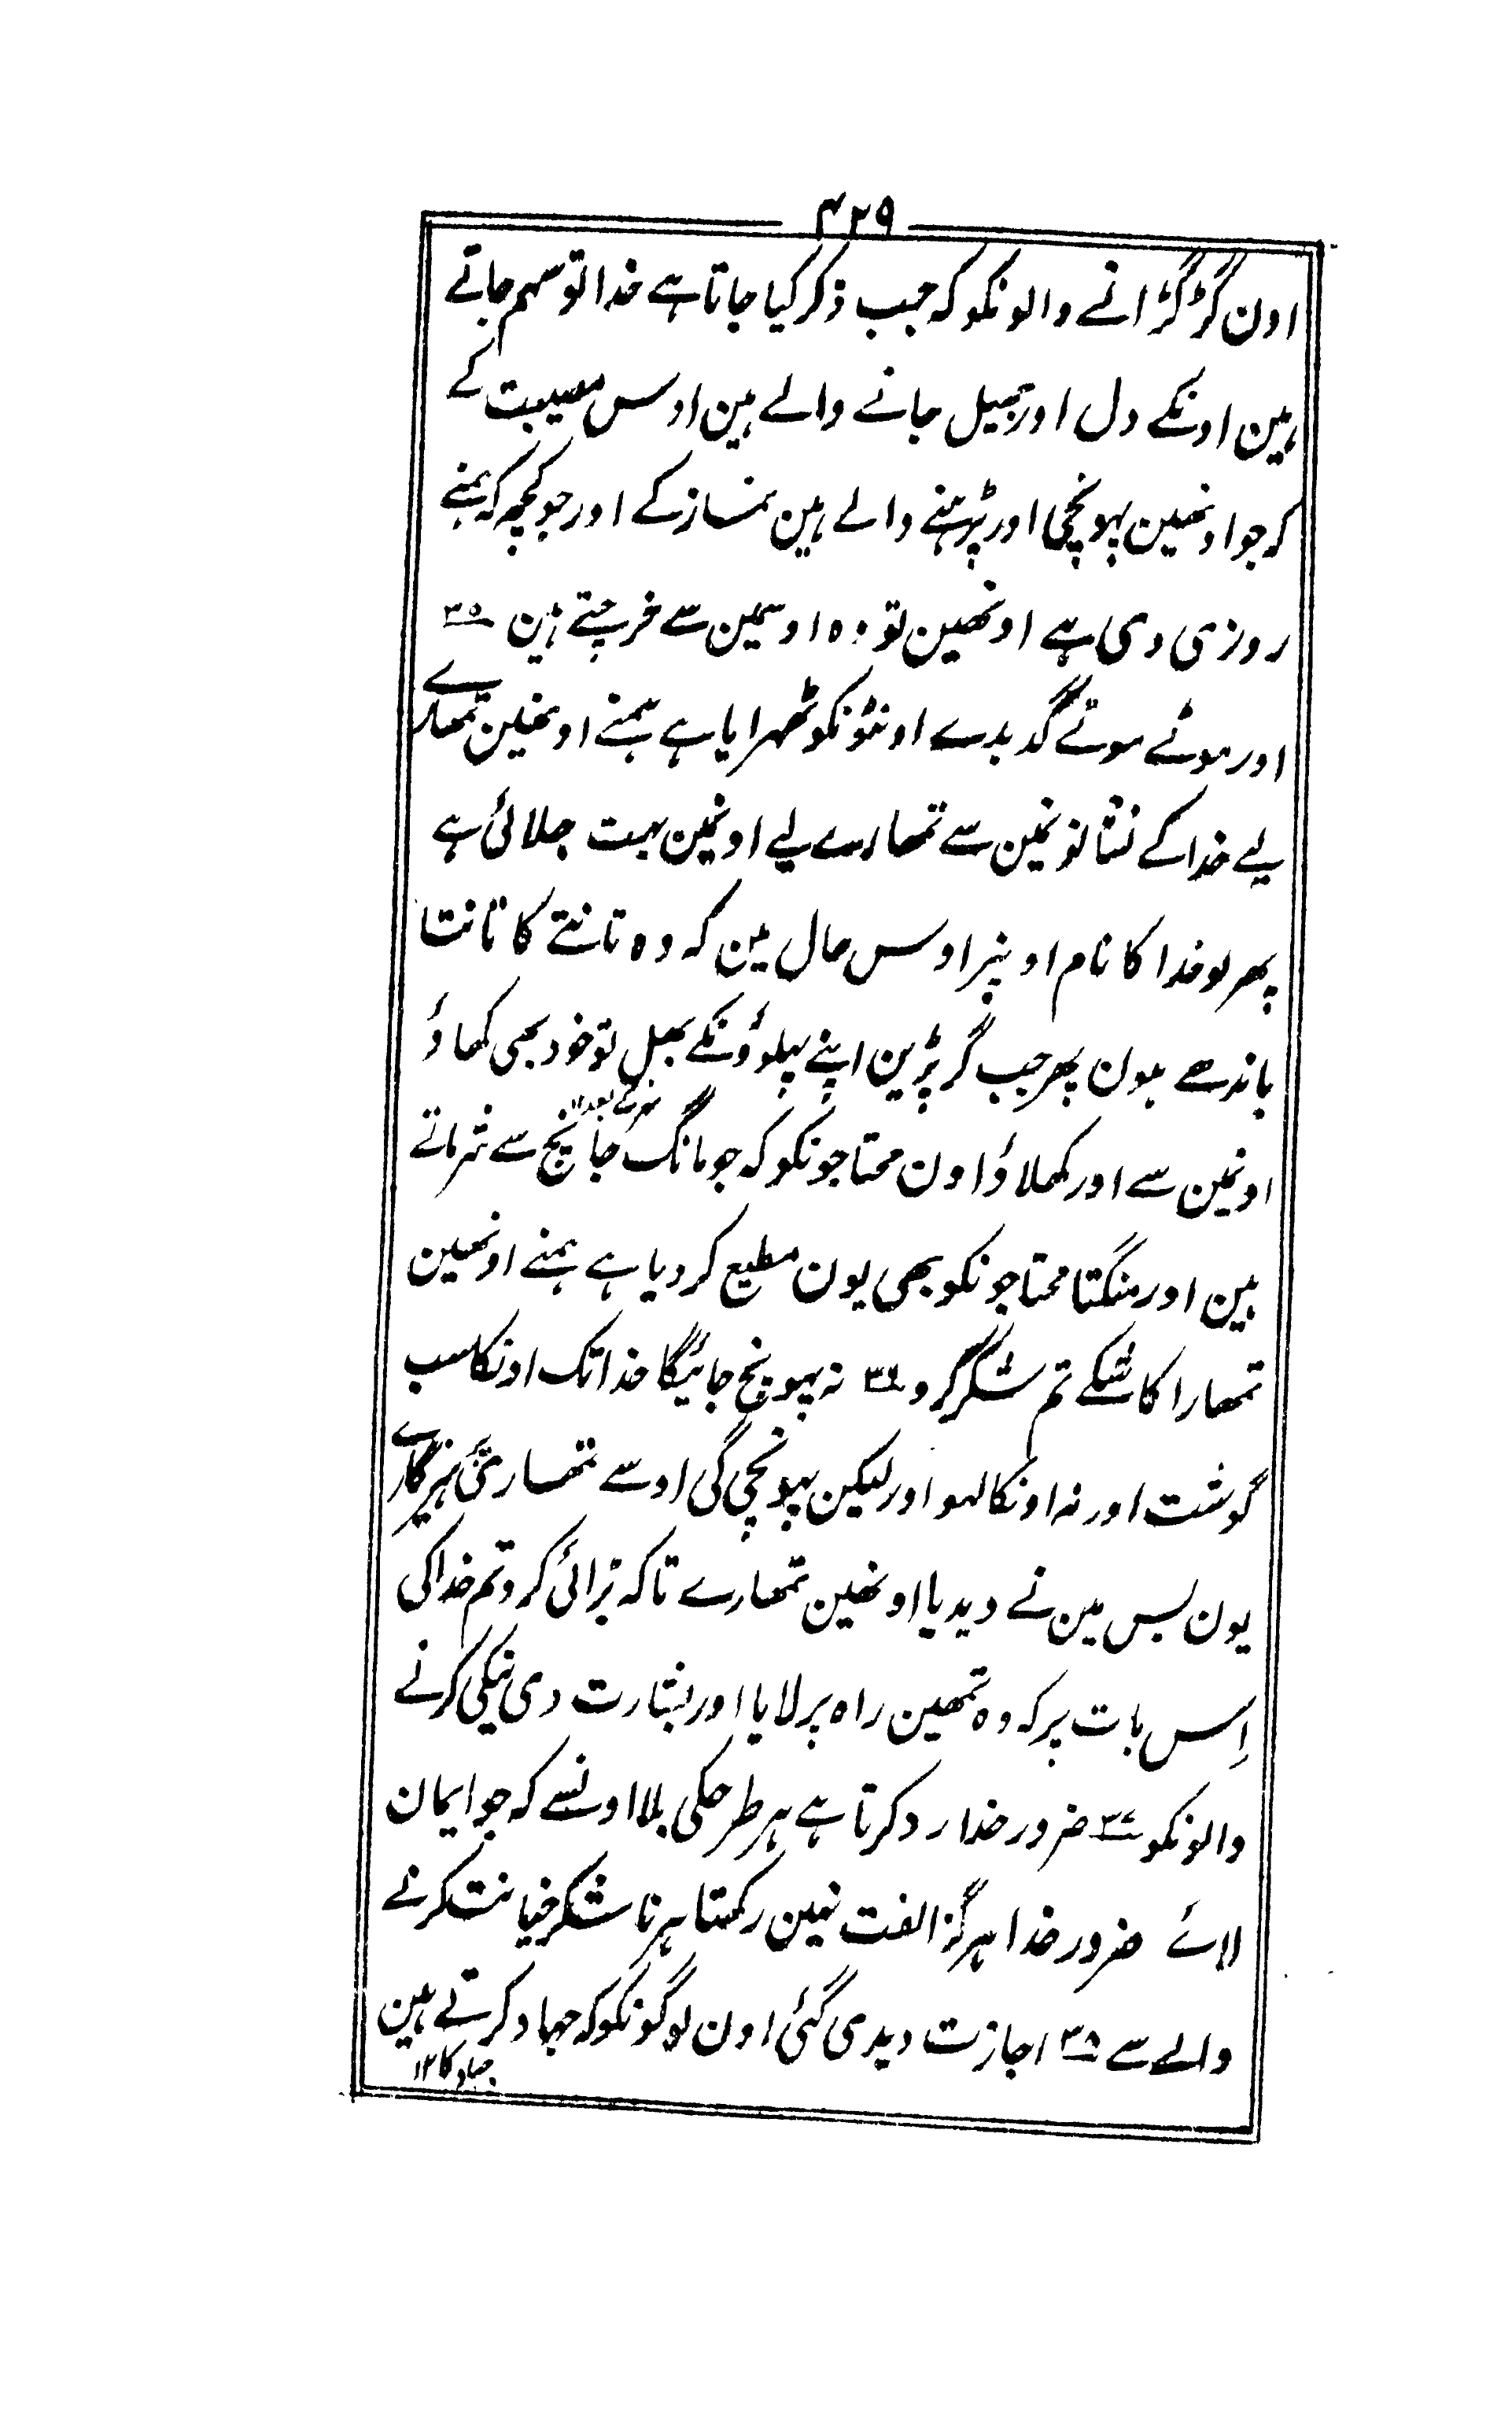 ۴۲۹
اون گڑگڑانے والونکو کہ جب ذکر کیا جاتا ہے خدا تو سہم جاتے
ہین اونکے دل اور جھیل جانے والے ہین اوس مصیبت کے
کہ جو اونھین پہونچی اور پڑہنے والے ہین نماز کے اور جو کچھ کہ ہمنے
روزی دی ہے اونھین تو وہ اوسمین سے خرچتے ہین ۳۵
اور موٹے موٹے گدبدے اونٹونکو ٹھہرایا ہے ہمنے اونھین تمھارے
لیے خدا کے نشانونمین سے تمھارے لیے اونمین بہت بھلائی ہے
پھر لو خدا کا نام اونپر اوس حال مین کہ وہ تانتے کا تانتا
باندھے ہون پھر جب گر پڑین اپنے پہلوؤنکے بھل تو خود بھی کھاؤ
نحر کے بعد ۱۲
اونمین سے اور کھلاؤ اون محتاجونکو کہ جو مانگ جانچ سے شرماتے
ہین اور منگتا محتاجونکو بھی یون مطیع کر دیا ہے ہمنے اونھین
تمھارا کاشکے تم شکر کرو ۳۶ نہ پہونچ جائیگا خدا تک اونکا سب
گوشت اور نہ اونکا لہو اور لیکن پہونچیگی اوسے تمھاری پرہیزگاری
یون بس مین نے دیدیا اونھین تمھارے تاکہ بڑائی کرو تم خدا کی
اِس بات پر کہ وہ تمھین راہ پر لایا اور بشارت دی نیکی کرنے
والونکو ۳۷ ضرور خدا رد کرتا ہے ہر طرحکی بلا اونسے کہ جو ایمان
لائے ضرور خدا ہرگز الفت نہین رکھتا ہر ناشکر خیانتکرنے
والے سے ۳۸ اجازت دیدی گئی اون لوگونکو کہ جہاد کرتے ہین
جہاد کا ۱۲